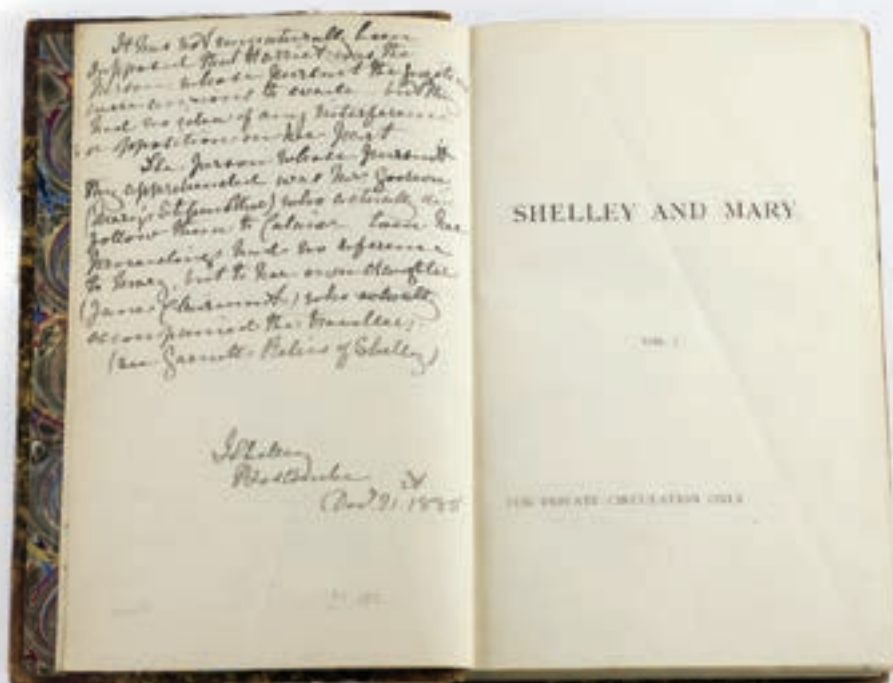 It has not unnaturally been
supposed that Harriet was the
Person whose pursuit the
were anxious to evade but they
had no idea of any interference
or opposition on her part
The Person whose pursuit
they apprehended was Mrs Godwin
(Mary's Stepmother) who actually did
follow them to Calais her
proceedings had no reference
to Mary, but to her own daughter
(Jane Clairmont) who actually
accompanied the travellers
(see Garnett Relics of Shelley)
Shelley
Boscombe
21
SHELLEY AND MARY
VOL. I
FOR PRIVATE CIRCULATION ONLY